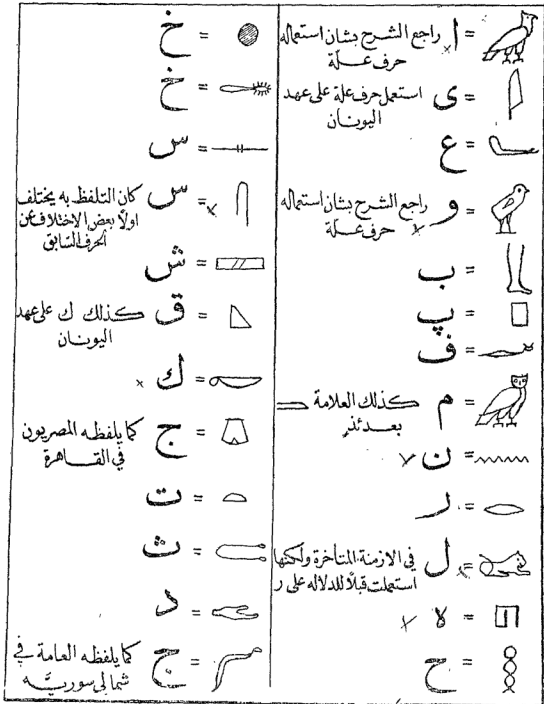 = ا راجع الشرح بشان استعماله
حرف علّة
= ى استعمل حرف علة على عهد
اليونان
= ع
= و راجع الشرح بشان استعماله
حرف علّة
= ب
= پ
= ف
= م كذلك العلامة
بعدئذ
= ن
= ر
= ل في الازمنة المتأخرة ولكنها
استعملت قبلاً للدلاله على ر
= ه
= ح
= خ
= خ
= س
= س كان التلفظ به يختلف
اولاً بعض الاختلاف عن
الحرف السابق
= ش
= ق كذلك ك على عهد
اليونان
= ك
= ج كما يلفظه المصريون
في القاهرة
= ت
= ث
= د
= ج كما يلفظه العامة في
شمالي سوريَّه